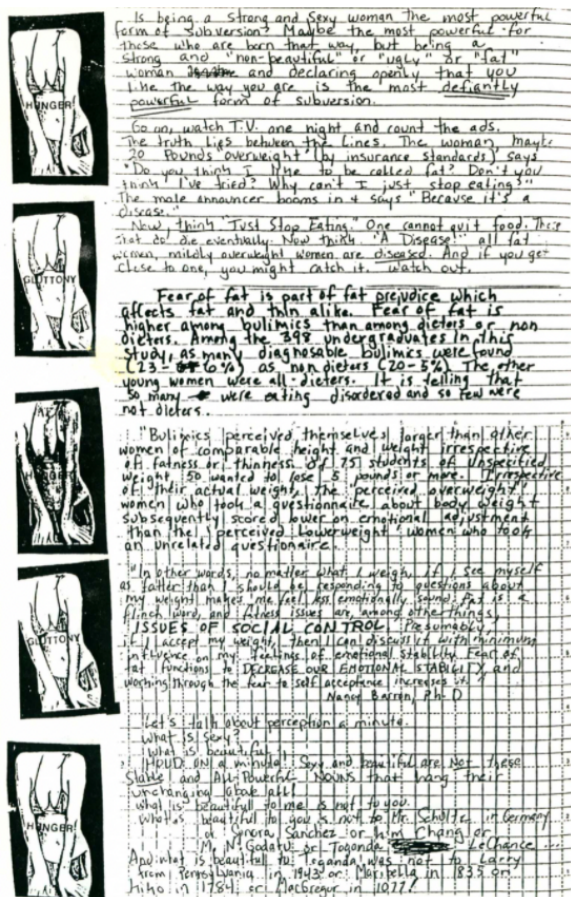 Is being a strong and sexy woman the most powerful
form of subversion? Maybe the most powerful for
those who are born that way, but being a
strong and "non-beautiful" or "ugly" or "fat"
woman and declaring openly that you
like the way you are is the most defiantly
powerful form of subversion.
Go on, watch T.V. one night and count the ads.
The truth lies between the lines. The woman, maybe
20 pounds overweight (by insurance standards) says
"Do you think I like to be called fat? Don't you
think I've tried? Why can't I just stop eating?"
The male announcer booms in & says "Because it's a
disease."
Now, think "Just Stop Eating." One cannot quit food. Those
that do die eventually. Now think "A Disease!" all fat
women, mildly overweight women are diseased. And if you get
close to one, you might catch it. watch out.
Fear of fat is part of fat prejudice which
affects fat and thin alike. Fear of fat is
higher among bulimics than among dieters or non
dieters. Among the 398 undergraduates in this
study, as many diagnosable bulimics were found
(23 - 6%) as non dieters (20 - 5%) The other
young women were all dieters. It is telling that
so many were eating disordered and so few were
not dieters.
"Bulimics perceived themselves larger than other
women of comparable height and weight irrespective
of fatness or thinness. Of 75 students of unspecified
weight, 50 wanted to lose 5 pounds or more. Irrespective
of their actual weight, the perceived overweight
women who took a questionnaire about body weight
subsequently scored lower on emotional adjustment
than the perceived lowerweight women who took
an unrelated questionnaire.
"In other words, no matter what I weigh, if I see myself
as fatter than I should be, responding to questions about
my weight makes me feel less emotionally sound. Fat is a
flinch word, and fitness issues are, among other things,
ISSUES OF SOCIAL CONTROL. Presumably,
if I accept my weight, then I can discuss it with minimum
influence on my feelings of emotional stability. Fear of
fat functions to DECREASE OUR EMOTIONAL STABILITY and
working through the fear to self acceptance increases it."
Nancy Barron, Ph. D
Let's talk about perception a minute.
What is sexy?
What is beautiful?
HOLD ON a minute! Sexy and beautiful are Not these
Stable and All-Powerful NOUNS that hang their
unchanging above all!
what is beautiful to me is not to you.
What is beautiful to you is not to Mr. Scholtz in Germany
or Senora Sanchez or Kim Chang or
M. N'Godatu or Toganda LeChance ...
And what is beautiful to Toganda was not to Larry
from Pennsylvania in 1943 or Maribella in 1835 or
in 1784 or MacGregor in 1077!
HUNGER
GLUTTONY
HUNGER
GLUTTONY
HUNGER